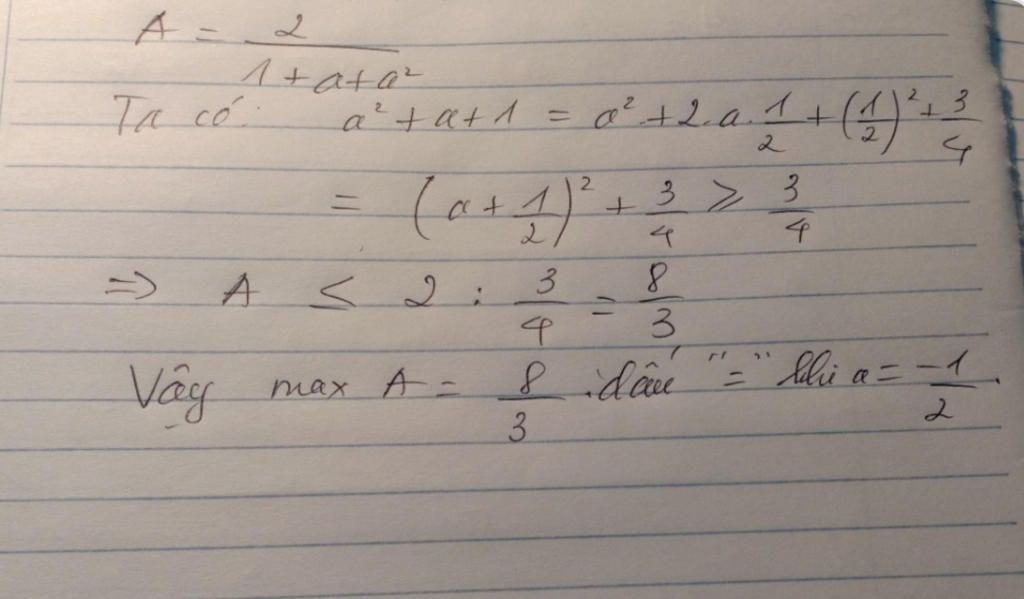 A = 2/(1 + a + a²)
Ta có: a² + a + 1 = a² + 2.a.1/2 + (1/2)² + 3/4
= (a + 1/2)² + 3/4 ⩾ 3/4
=> A ≤ 2 : 3/4 = 8/3
Vậy max A = 8/3 . dấu "=" khi a = -1/2.